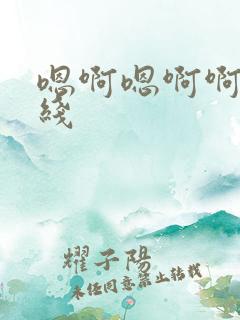 嗯啊嗯啊啊
綫
耀子陽
未經同意禁止轉載